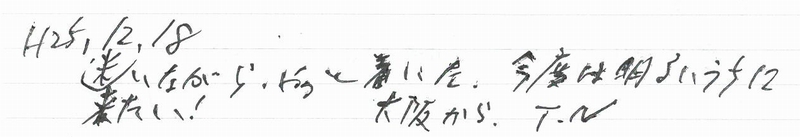 H25,12,18
迷いながら、やっと着いた。今度は明るいうちに
来たい!　大阪から. T.N